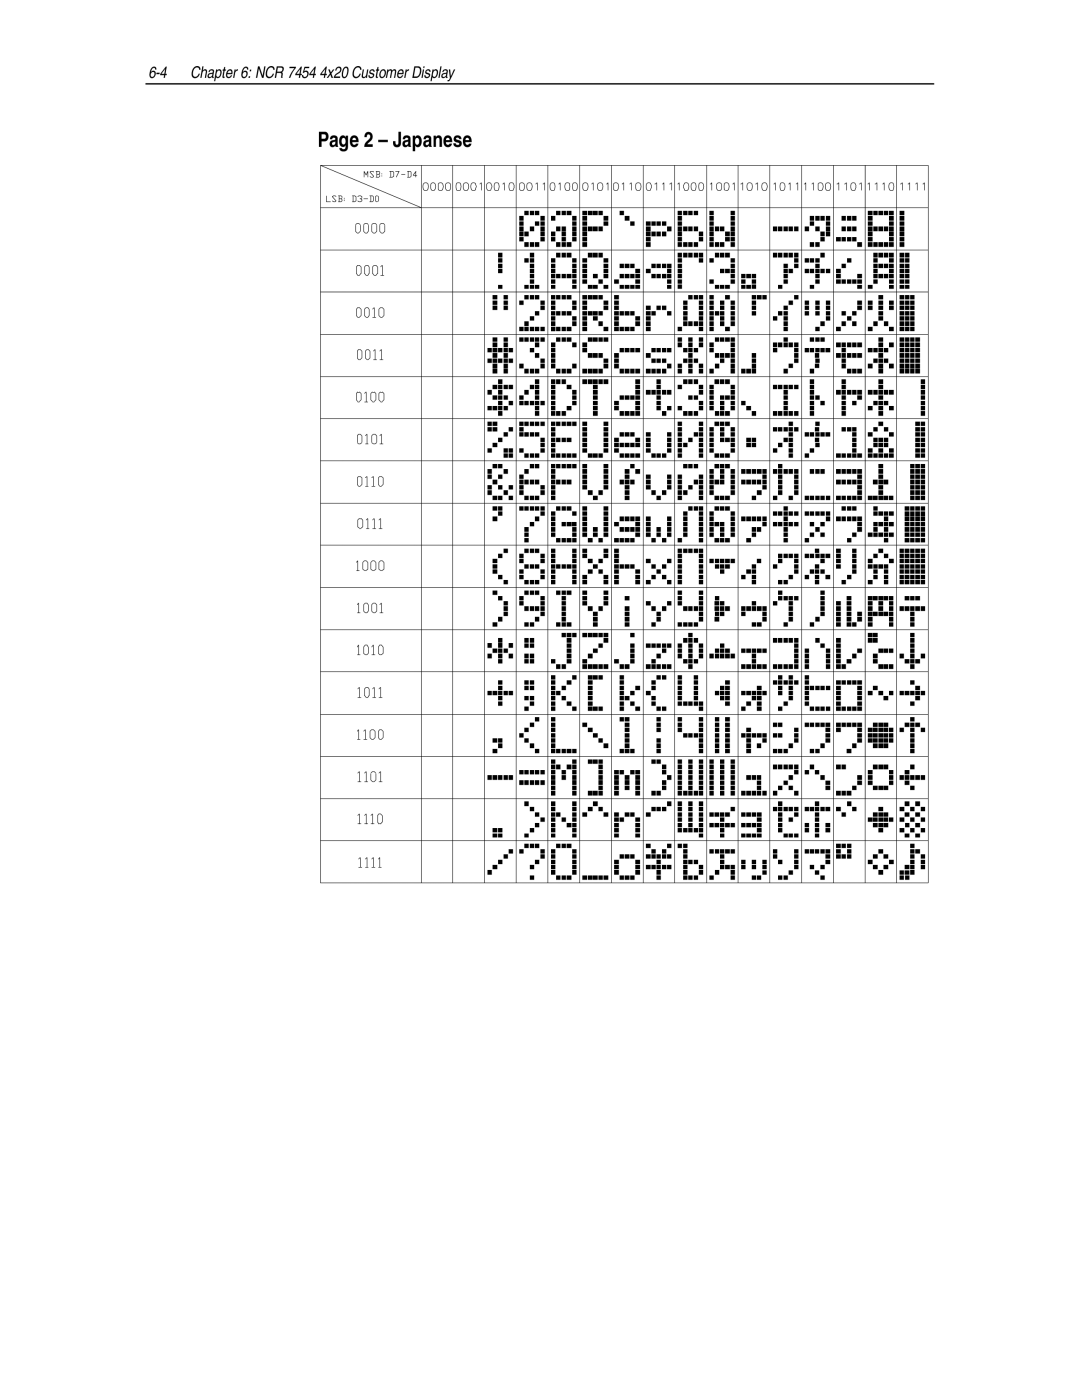 6-4 Chapter 6: NCR 7454 4x20 Customer Display
Page 2 – Japanese
MSB: D7-D4
LSB: D3-D0
0000 0001 0010 0011 0100 0101 0110 0111 1000 1001 1010 1011 1100 1101 1110 1111
0000 0 @ P ` p Б Ы ー タ ミ 日
0001 ! 1 A Q a q Г Э 。 ア チ ム 月
0010 " 2 B R b r Д Ю 「 イ ツ メ 火
0011 # 3 C S c s Ж Я 」 ウ テ モ 水
0100 $ 4 D T d t З 、 エ ト ヤ 木
0101 % 5 E U e u И ・ オ ナ ユ 金
0110 & 6 F V f v Й ヲ カ ニ ヨ 土
0111 ' 7 G W g w Л ァ キ ヌ ラ 年
1000 ( 8 H X h x П ィ ク ネ リ
1001 ) 9 I Y i y У ゥ ケ ノ ル 円 〒
1010 * : J Z j z Ф ェ コ ハ レ ℃ ↓
1011 + ; K [ k ( Ц ォ サ ヒ ロ ~ →
1100 , < L \ l ¦ Ч ャ シ フ ワ ● ↑
1101 - = M ] m ) Ш ュ ス ヘ ン ○ ←
1110 . > N ^ n ‾ Щ ョ セ ホ ゛ ◆
1111 / ? O _ o ¥ Ь ッ ソ マ ゜ ◇ ♪